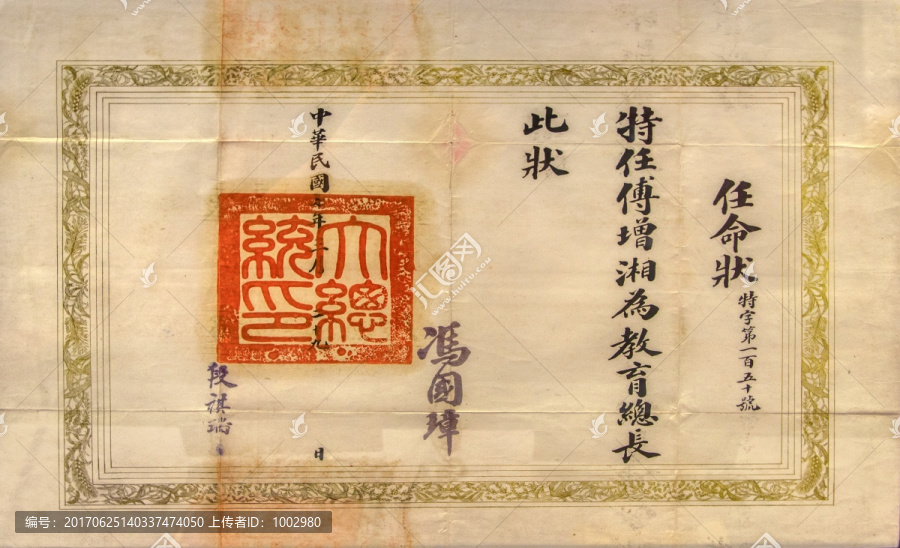 任命狀 特字第一百五十號
特任傅增湘為教育總長
此狀
馮國璋
中華民國七年三月二十九日
大總統印
段祺瑞
汇图网
编号：20170625140337474050 上传者ID：1002980